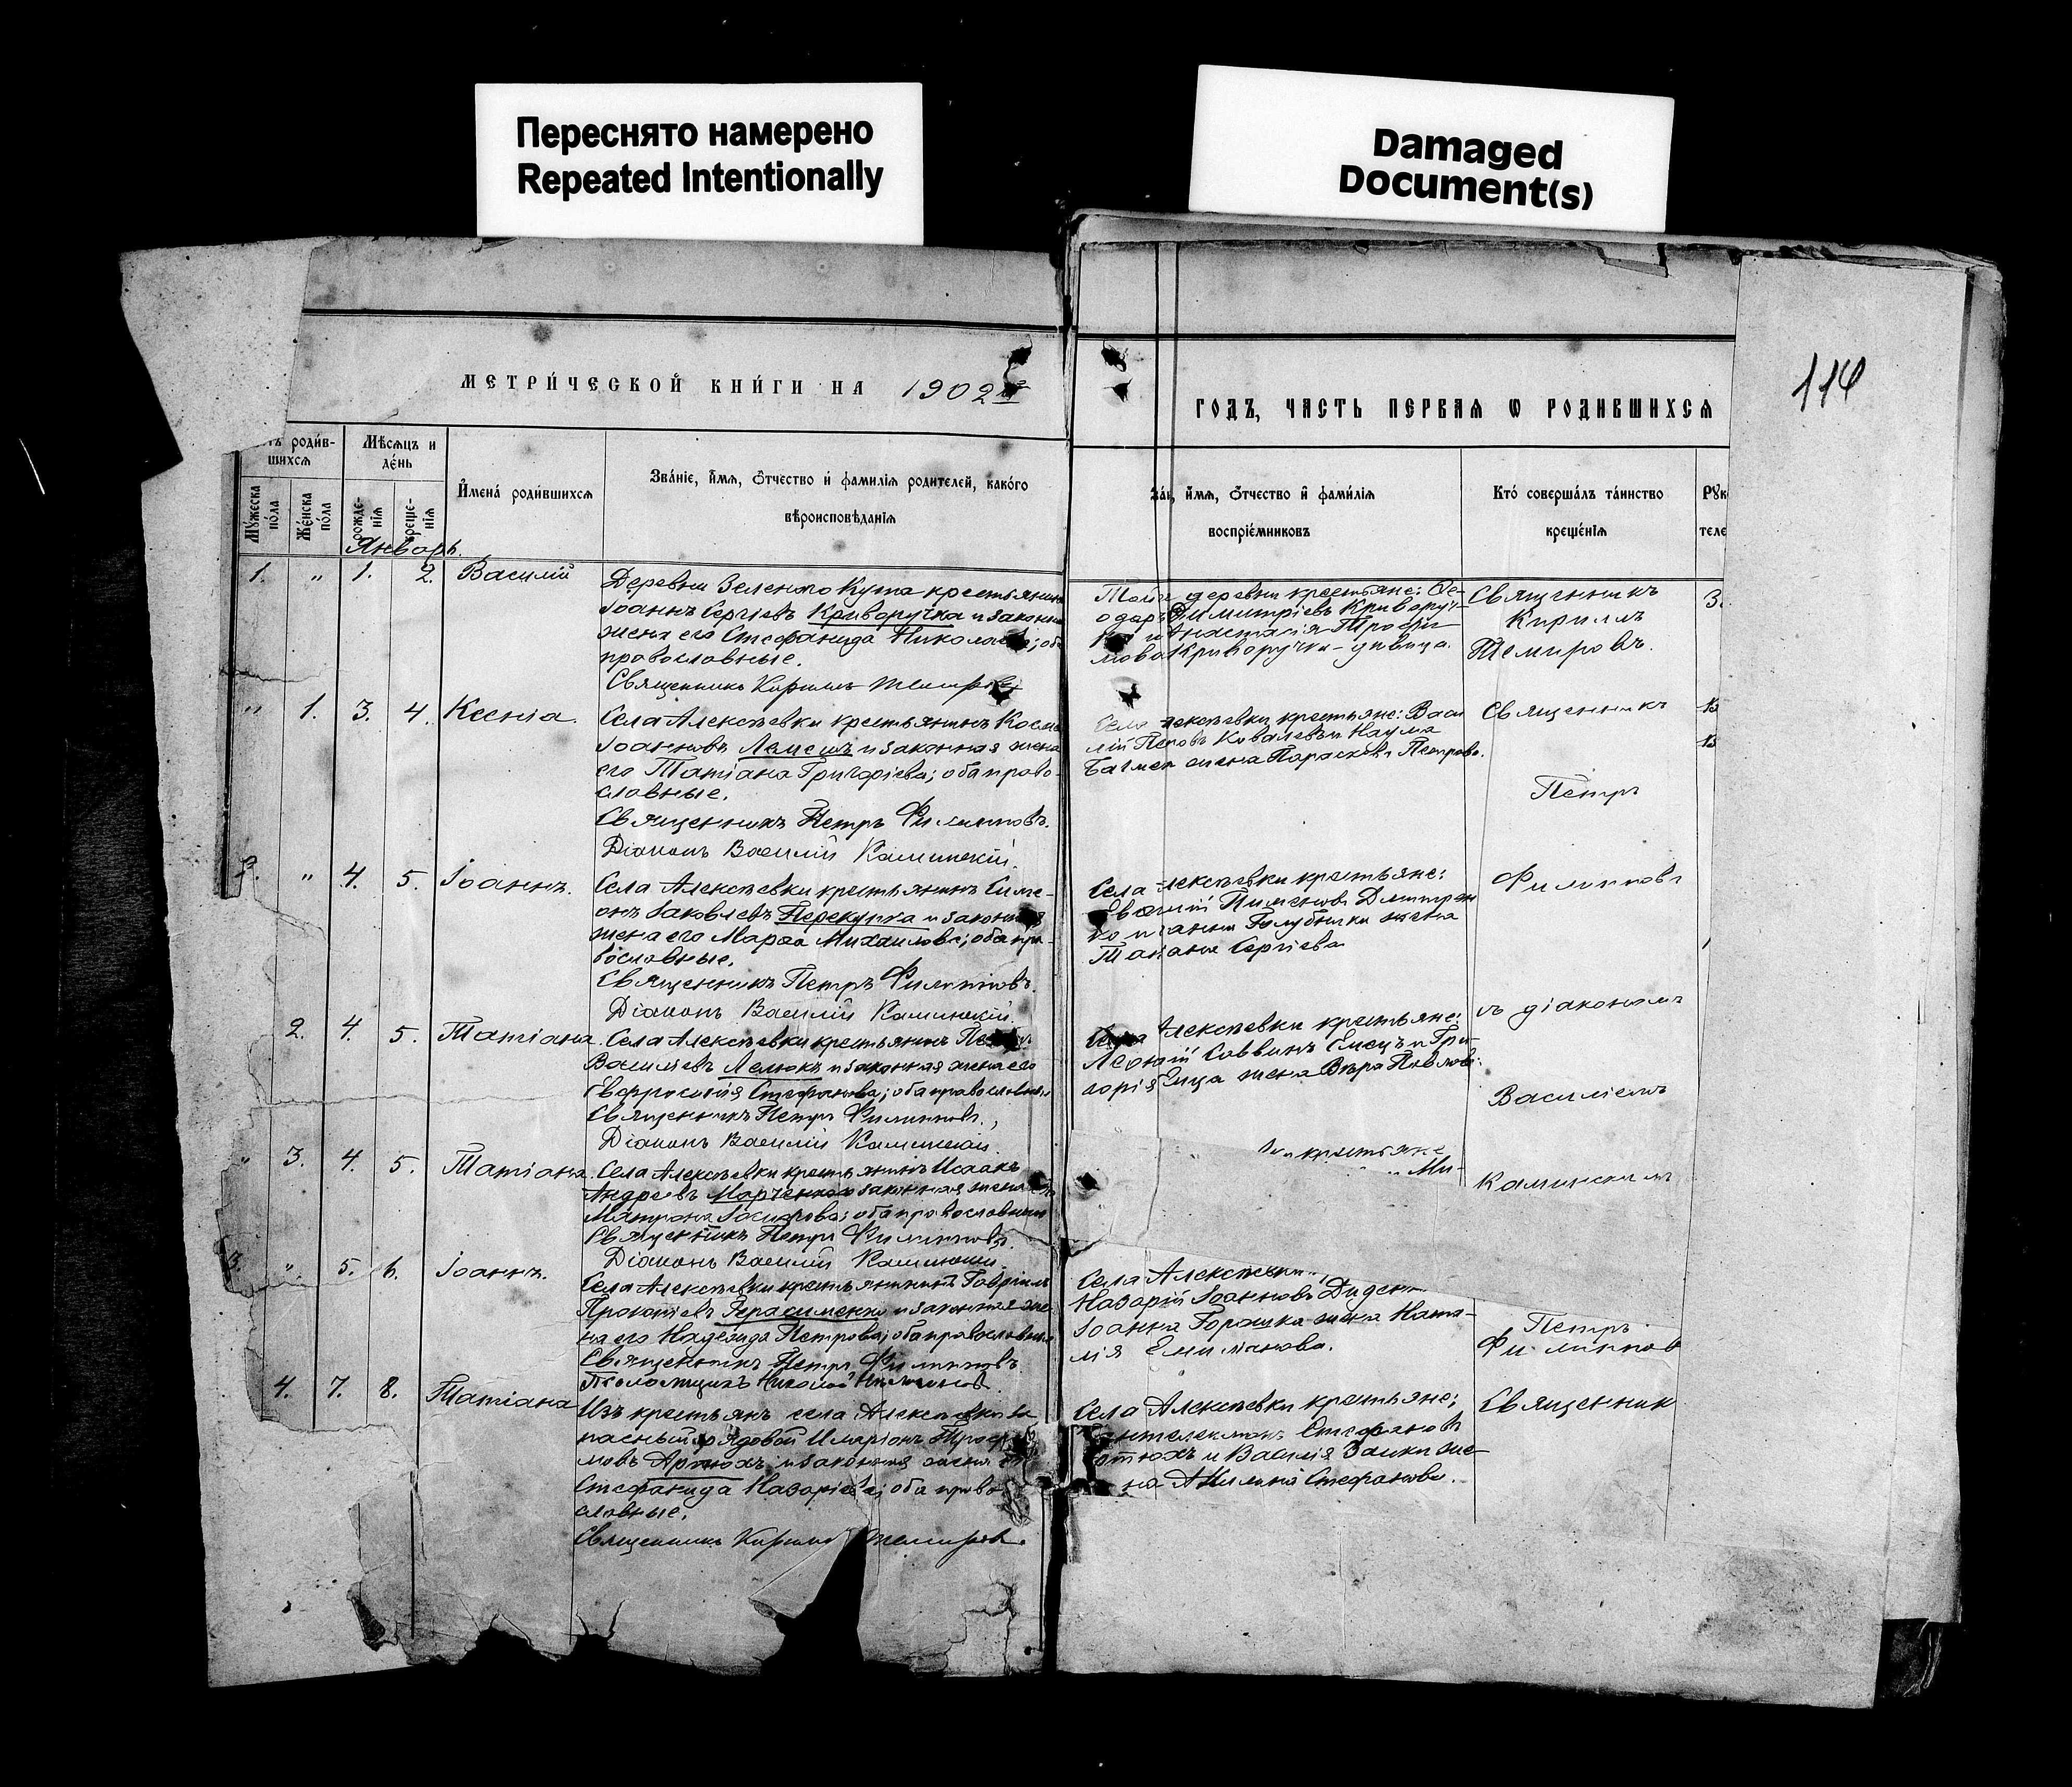 Переснято намерено
Repeated Intentionally
Damaged
Document(s)
114
МЕТРИ́ЧЕСКОЙ КНИ́ГИ НА 1902
ГОДЪ, ЧАСТЬ ПЕРВАѦ Ѡ РОДИВШИХСѦ
роди́в-
шихсѧ
Мѣсѧцъ и
де́нь
Мꙋ́жеска
по́ла
Же́нска
по́ла
рожде-
нїѧ
креще-
нїѧ
И҆мена́ роди́вшихсѧ
Зва́нїе, и҆́мѧ, ѻ҆́тчество и҆ фами́лїѧ роди́телей, како́гѡ
вѣроисповѣ́данїѧ
и҆́мѧ, ѻ҆́тчество и҆ фами́лїѧ
воспрїе́мниковъ
Кто̀ соверша́лъ та́инство
креще́нїѧ
Январь.
1. " 1. 2. Василій
Деревни Зеленого Кута крестьянинъ
Іоаннъ Сергіевъ Криворучка и законная
жена его Стефанида Николаева; оба
православные.
Священникъ Кириллъ Темировъ
Той деревни крестьяне: Ѳе-
одоръ Димитріевъ Криворуч-
ка и Анастасія Трофи-
мова Криворучка - дѣвица.
Священникъ
Кириллъ
Темировъ.
" 1. 3. 4. Ксенія.
Села Алексѣевки крестьянинъ Косма
Іоанновъ Лемешъ и законная жена
его Татіана Григоріева; оба право-
славные.
Священникъ Петръ Филипповъ.
Діаконъ Василій Каминскій.
Села Алексѣевки крестьяне: Васи
лій Петровъ Ковалевъ и Наума
жена Параскева Петрова.
Священникъ
Петръ
2. " 4. 5. Іоаннъ.
Села Алексѣевки крестьянинъ Симе-
онъ Іаковлевъ Перекупка и законная
жена его Марѳа Михаилова; оба пра-
вославные.
Священникъ Петръ Филипповъ.
Діаконъ Василій Каминскій.
Села Алексѣевки крестьяне:
Евѳимій Пименовъ Дмитрен
ко и Іанна Голубнички жена
Татіана Сергіева
Филипповъ
2. 4. 5. Татіана.
Села Алексѣевки крестьянинъ
Василіевъ Лелюкъ и законная жена его
Евфросинія Стефанова; оба православные
Священникъ Петръ Филипповъ.,
Діаконъ Василій Каминскій.
Села Алексѣевки крестьяне:
Леонтій Саввинъ Емецъ и Гри-
горія Емца жена Вѣра Павлова.
съ діакономъ
Василіемъ
" 3. 4. 5. Татіана.
Села Алексѣевки крестьянинъ Исаакъ
Андреевъ Марченко и законная жена его
Матрона; оба православные
Священникъ Петръ Филипповъ.
Діаконъ Василій Каминскій.
крестьяне
Ми-
Каминскимъ
3. " 5. 6. Іоаннъ.
Села Алексѣевки крестьянинъ Гавріилъ
Прокопіевъ Герасименко и законная же-
на его Надежда Петрова; оба православные
Священникъ Петръ Филипповъ
Псаломщикъ Николай
Села Алексѣевки
Назарій Іоанновъ Диденко
Іоанна Горошка жена Ната-
лія Емиліанова.
Петръ
Филиппов
4. 7. 8. Татіана
Изъ крестьянъ села Алексѣевки за
пасный рядовой Иларіонъ Трофи
мовъ Артюхъ и законная жена его
Стефанида Назаріева; оба право
славные.
Священникъ Кириллъ Темировъ.
Села Алексѣевки крестьяне:
Стефановъ
и Василія Заики же-
на Акилина Стефанова.
Священник